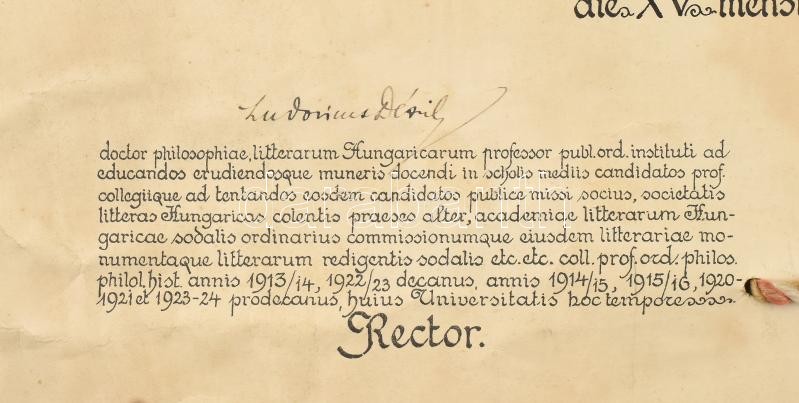 die XV mensi
Ludovicus Dézsi
doctor philosophiae, litterarum Hungaricarum professor publ. ord. instituti ad
educandos erudiendosque muneris docendi in scholis mediis candidatos prof.
collegiique ad tentandos eosdem candidatos publice missi socius, societatis
litteras Hungaricas colentis praeses alter, academiae litterarum Hun-
garicae sodalis ordinarius commissionumque eiusdem litterariae mo-
numentaque litterarum redigentis sodalis etc. etc. coll. prof. ord. philos.
philol. hist. annis 1913/14, 1922/23 decanus, annis 1914/15, 1915/16, 1920-
1921 et 1923-24 prodecanus, huius Universitatis hoc tempore
Rector.